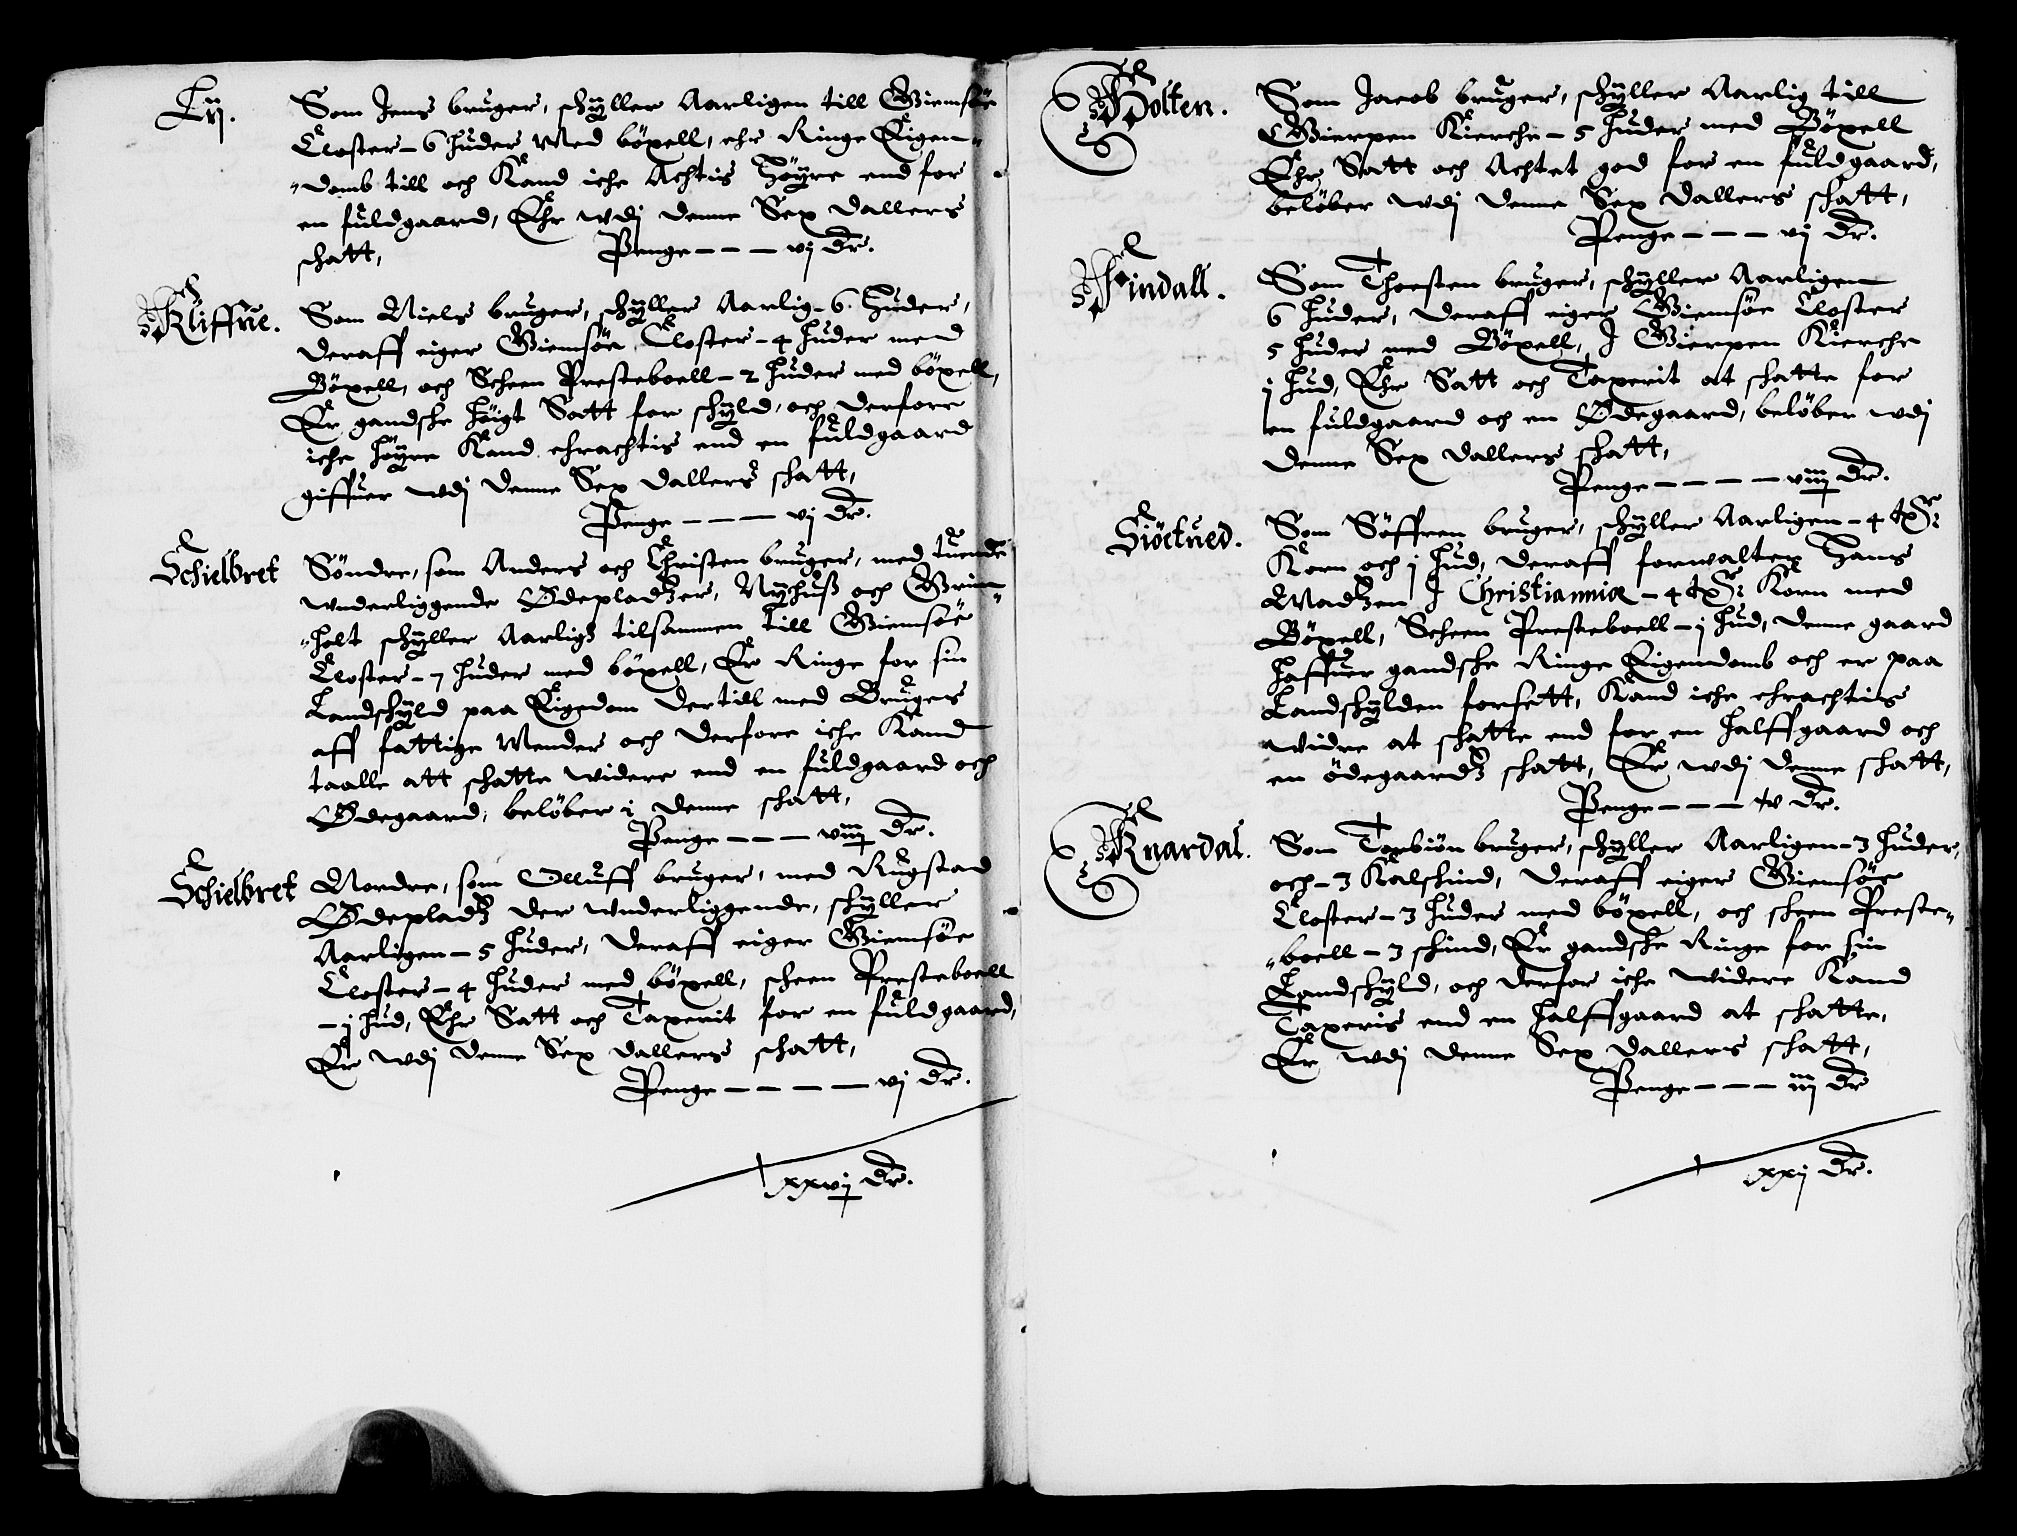 Lij.
Som Jens bruger, schÿller Aarligen till Giemsöe
Closter – 6 huder Med böxell, ehr Ringe Eigen-
domb till och Kand iche Achtis höÿre end for
en fuldgaard, Ehr wdj denne Sex dallers
schatt, Penge – – – vj dr.
Kliffue.
Som Niels bruger, schÿller Aarlig – 6 huder,
deraff eiger Giemsöe Closter – 4 huder med
Böxell, och Scheen Presteboell – 2 huder med böxell,
Er gandske höigt Satt for schÿld, och derfore
iche höÿre Kand ehrachtis end en fuldgaard
giffuer wdj denne Sex dallers schatt,
Penge – – – vj dr.
Schielbret
Söndre, som Anders och Christen bruger, med tuende
wnderliggende Ødepladtzer, Nÿhuß och Grim-
holt schÿller Aarligs tilsammen till Giemsöe
Closter – 7 huder med böxell, Er Ringe for sin
Landschÿld paa Eigedom dertill med Brugers
aff fattige Mender och derfore iche Kand
taalle att schatte widere end en fuldgaard och
Ødegaard, beløber i denne schatt,
Penge – – – viij dr.
Schielbret
Nordre, som Olluff bruger, med Rugstad
Ødepladtz der wnderliggende, schÿller
Aarligen – 5 huder, deraff eiger Giemsöe
Closter – 4 huder med böxell, scheen Presteboell
– j hud, Ehr Satt och Taxerit for en fuldgaard,
Er wdj denne Sex dallers schatt,
Penge – – – – vj dr.
xxvij dr.
Holten.
Som Jacob bruger, schÿller Aarlig till
Gierpen Kierche – 5 huder med Böxell
Ehr Satt och Achtet god for en fuldgaard,
belöber wdj denne Sex dallers schatt,
Penge – – – vj dr.
Findall.
Som Thorsten bruger, schÿller Aarligen
6 huder, deraff eiger Giemsöe Closter
5 huder med Böxell, I Gierpen Kierche
j hud, Ehr Satt och Taxerit at schatte for
en fuldgaard och en Ødegaard, belöber wdj
denne Sex dallers schatt,
Penge – – – – viij dr.
Siöctued.
Som Söffren bruger, schÿller Aarligen – 4
Korn och j hud, deraff forwalter Hans
Madtzen I Christiannia – 4 Korn med
Böxell, Scheen Presteboell – j hud, denne gaard
haffuer gandske Ringe Eigendomb och er paa
Landschÿlden forsett, Kand iche ehrachtis
widre at schatte end for en halffgaard och
en ödegaardtz schatt, Er wdj denne schatt,
Penge – – – dr.
Knardal.
Som Torbiön bruger, schÿller Aarligen – 3 huder,
och – 3 Kalskind, deraff eiger Giemsöe
Closter – 3 huder med böxell, och scheen Preste-
boell – 3 schind, Er gandske Ringe for sin
Landschÿld, och derfor iche widere Kand
Taxeris end en halffgaard at schatte,
Er wdj denne Sex dallers schatt,
Penge – – – iij dr
xxj dr.